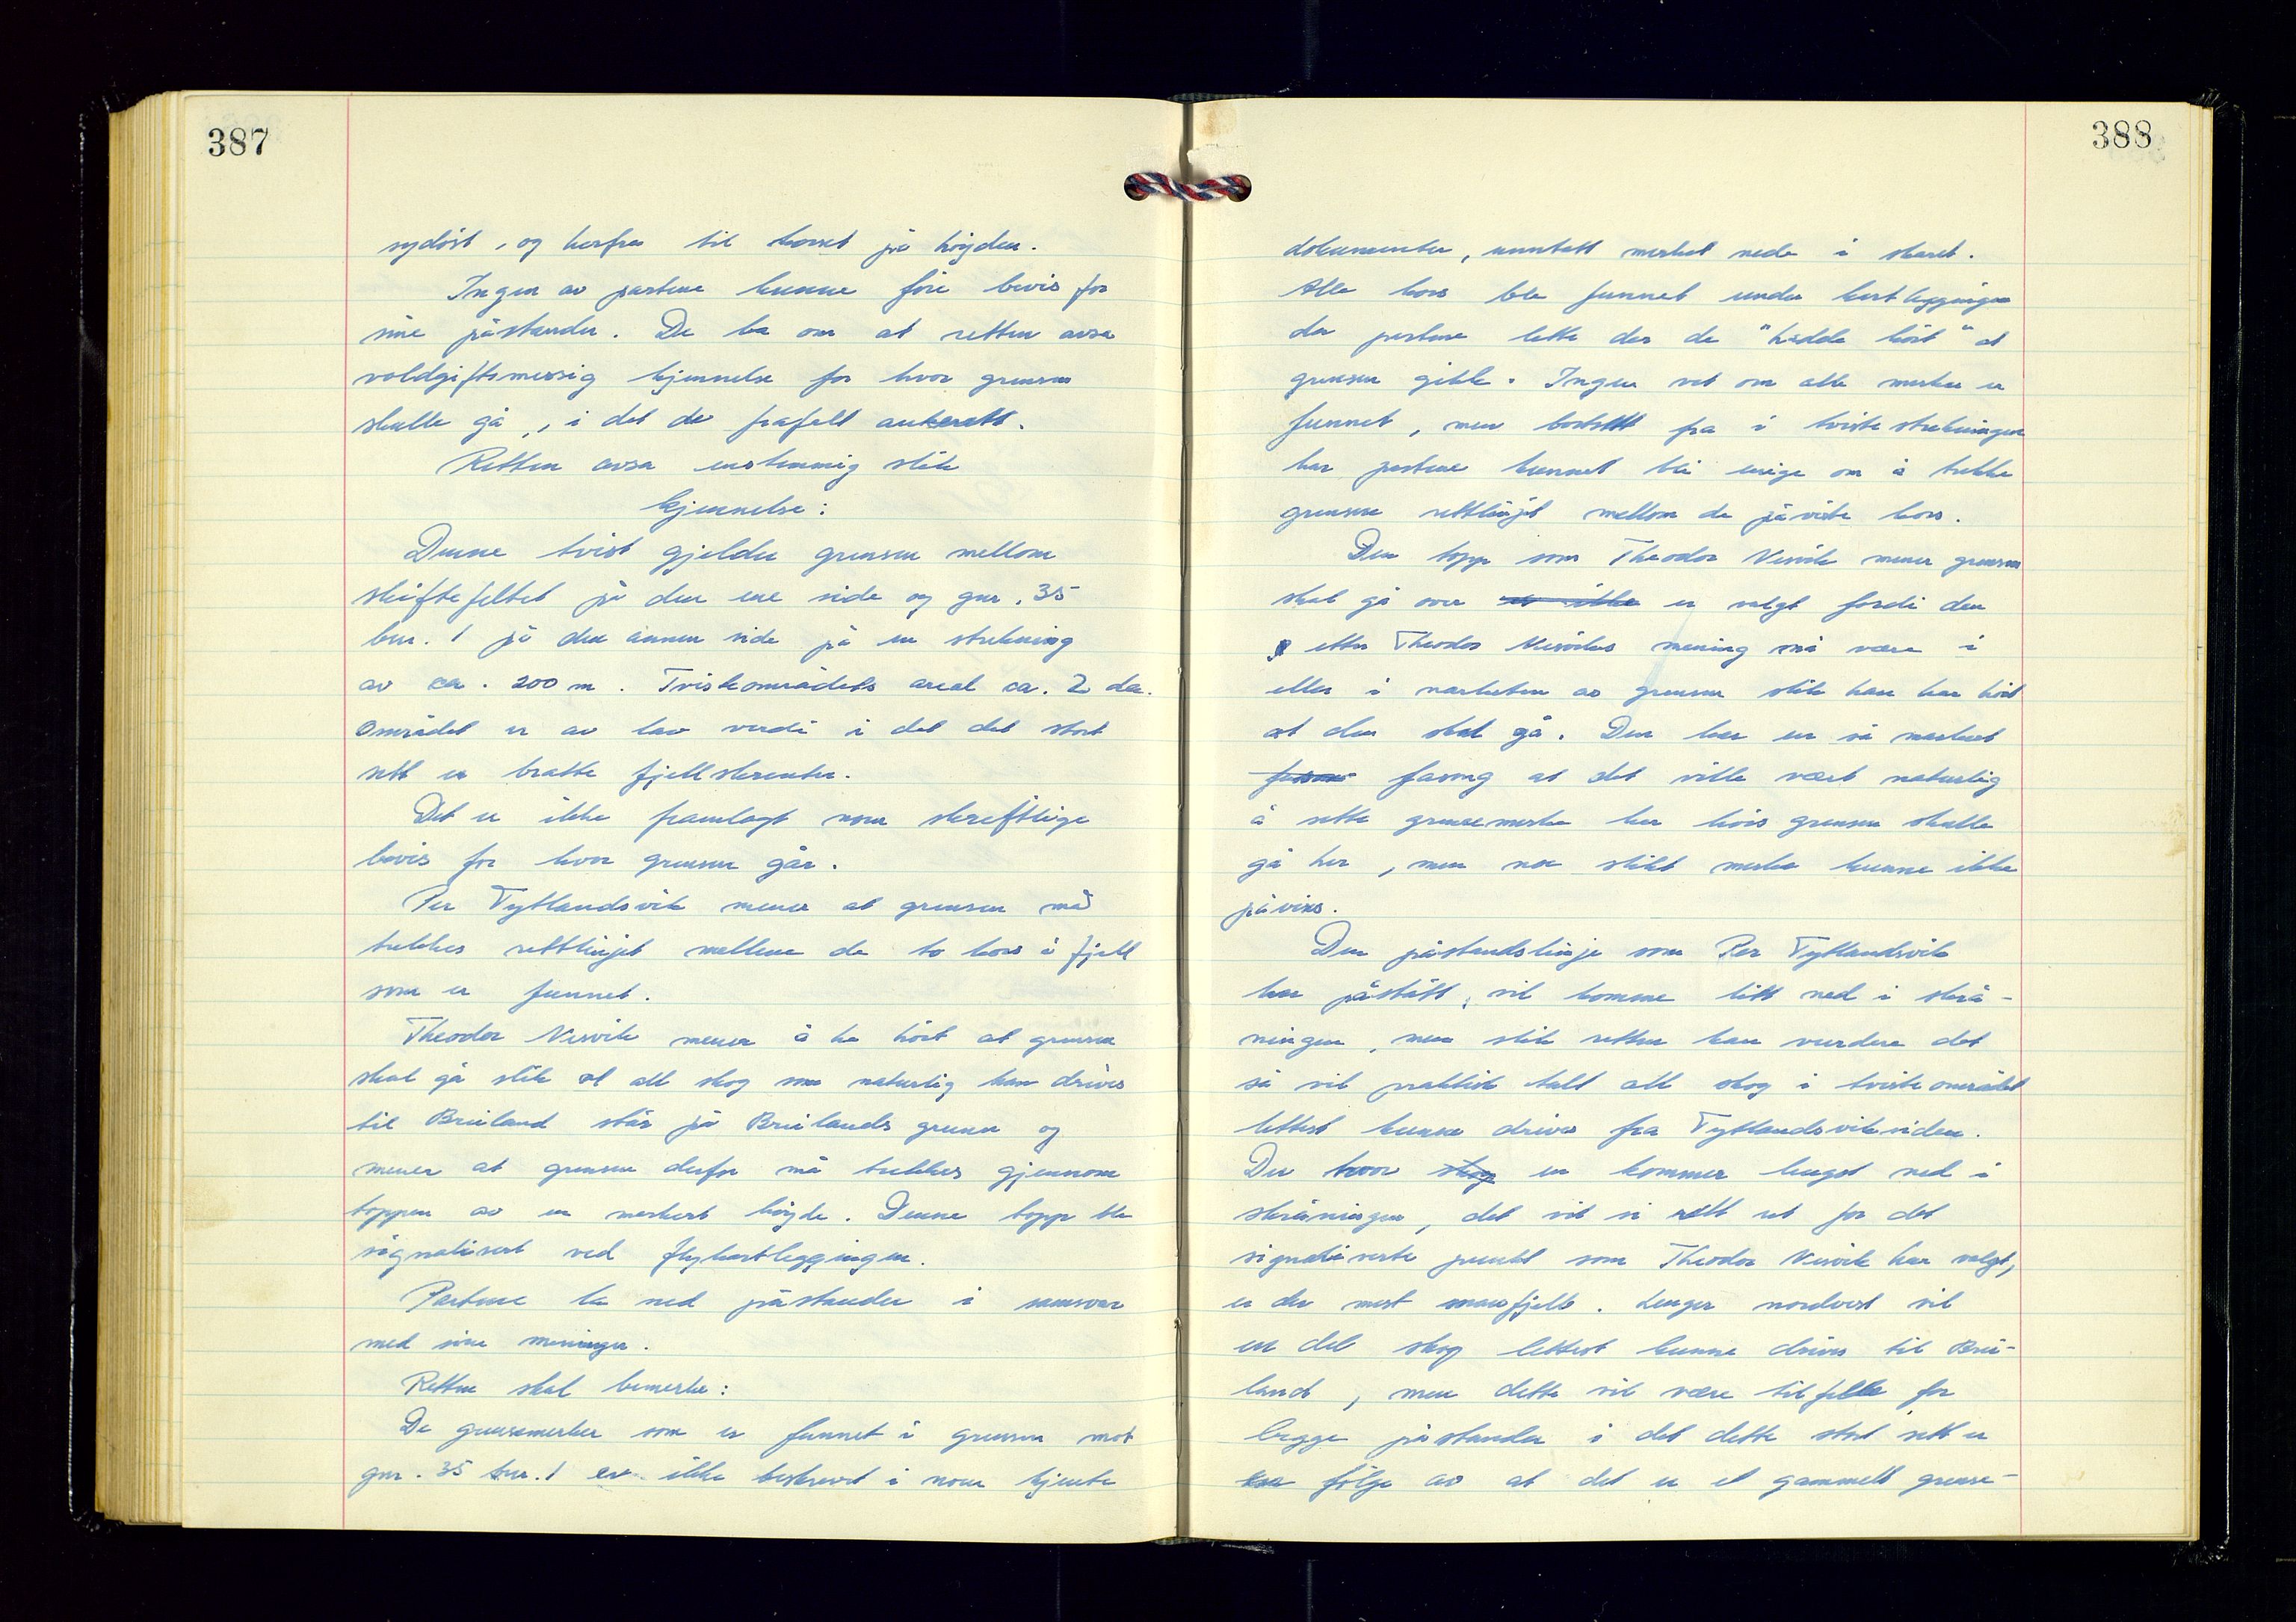 387
sydöst, og herfra til korset på höyden.
Ingen av partene kunne före bevis for
sine påstander. De ba om at retten avsa
voldgiftsmessig kjennelse for hvor grensen
skulle gå, i det de frafalt ankerett.
Retten avsa enstemmig slik
kjennelse:
Denne tvist gjelder grensen mellom
skiftefeltet på den ene side og gnr. 35
bnr. 1 på den annen side på en strekning
av ca. 200 m. Tvisteområdets areal ca. 2 da.
Området er av lav verdi i det det stort
sett er bratte fjellskrenter.
Det er ikke framlagt noen skriftlige
bevis for hvor grensen går.
Per Tytlandsvik mener at grensen må
trekkes rettlinjet mellom de to kors i fjell
som er funnet.
Theodor Nesvik mener å ha hört at grensen
skal gå slik at all skog som naturlig kan drives
til Bruland står på Brulands grunn og
mener at grensen derfor må trekkes gjennom
toppen av en markert höyde. Denne topp ble
signalisert ved flykartleggingen.
Partene la ned påstander i samsvar
med sine meninger.
Retten skal bemerke:
De grensemerker som er funnet i grensen mot
gnr. 35 bnr. 1 er ikke beskrevet i noen kjente
388
dokumenter, unntatt merket nede i skaret.
Alle kors ble funnet under kartleggingen
der partene lette der de "hadde hört" at
grensen gikk. Ingen vet om alle merker er
funnet, men bortsett fra i tvistestrekningen
har partene kunnet bli enige om å trekke
grensen rettlinjet mellom de påviste kors.
Den topp som Theodor Nesvik mener grensen
skal gå over er ikke er valgt fordi den
etter Theodor Nesviks mening må være i
eller i nærheten av grensen slik han har hört
at den skal gå. Den har en så markert
fasong at det ville vært naturlig
å sette grensemerke her hvis grensen skulle
gå her, men noe slikt merke kunne ikke
påvises.
Den påstandslinje som Per Tytlandsvik
har påstått, vil komme litt ned i skrå-
ningen, men slik retten kan vurdere det
så vil praktisk talt all skog i tvisteområdet
lettest kunne drives fra Tytlandsviksiden.
Der hvor skog en kommer lengst ned i
skråningen, det vil si rett ut for det
signaliserte punkt som Theodor Nesvik har valgt,
er der mest snaufjell. Lenger nordvest vil
en del skog lettest kunne drives til Bru-
land, men dette vil være tilfelle for
begge påstander i det dette stort sett er
en fölge av at det er et gammelt grense-